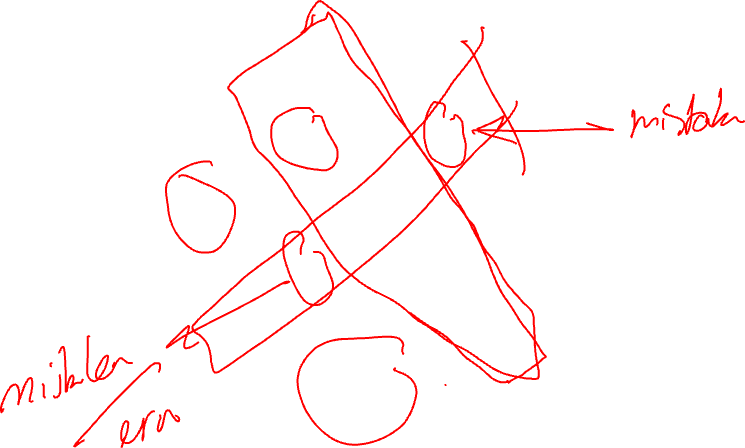 mistake
mistaken
error